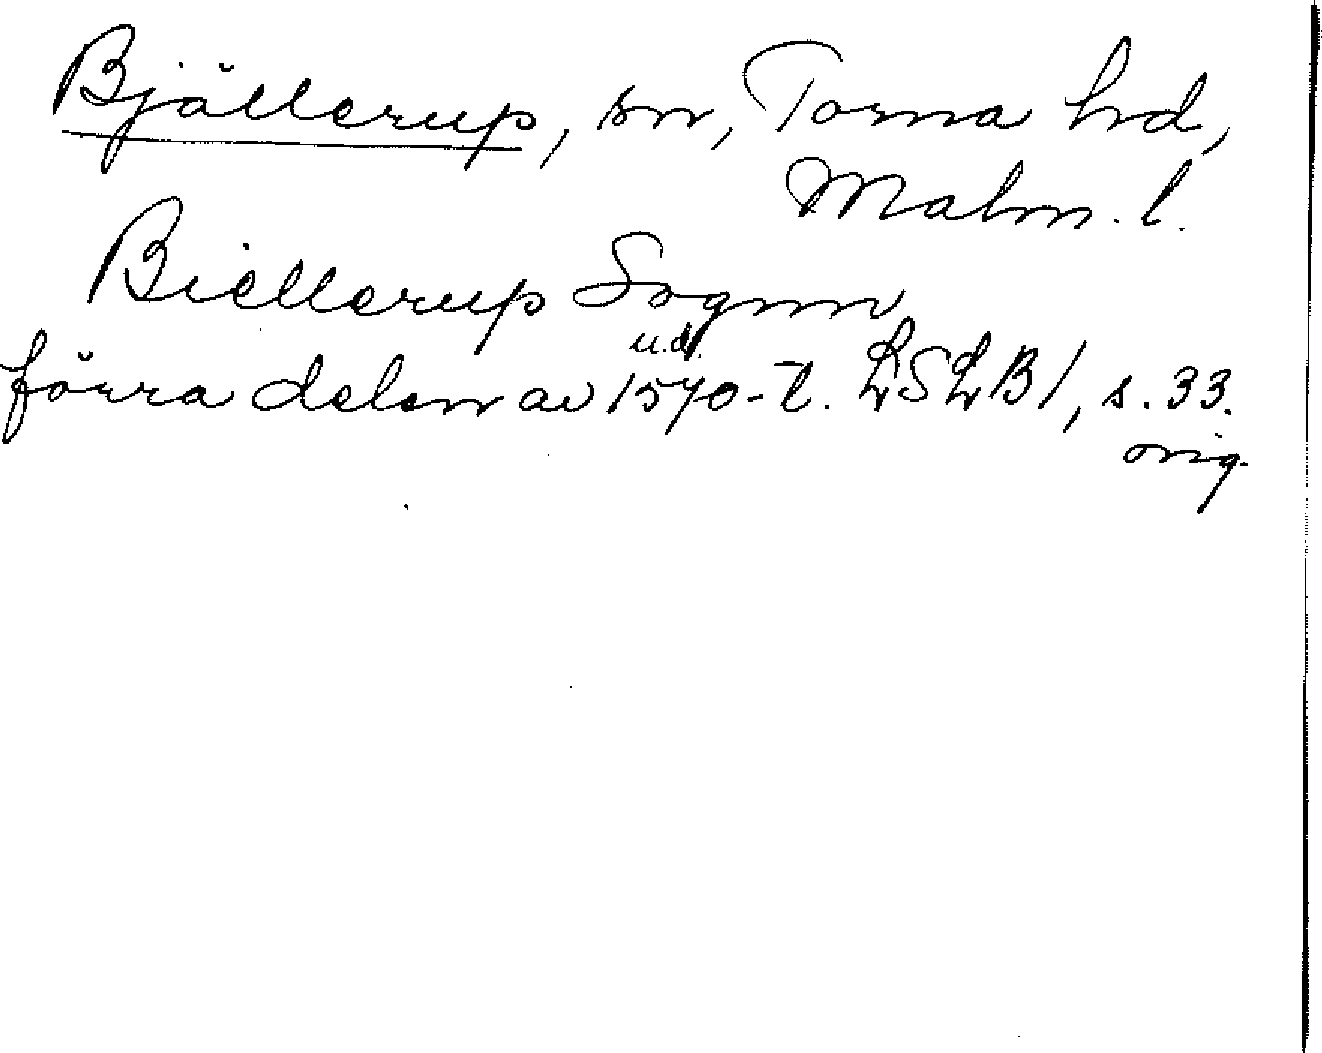 Bjällerup, sn, Torna hd,
Malm. l.
Biellerup Sognn
u.d.
förra delen av 1570-t. LSLB1, s. 33.
orig.